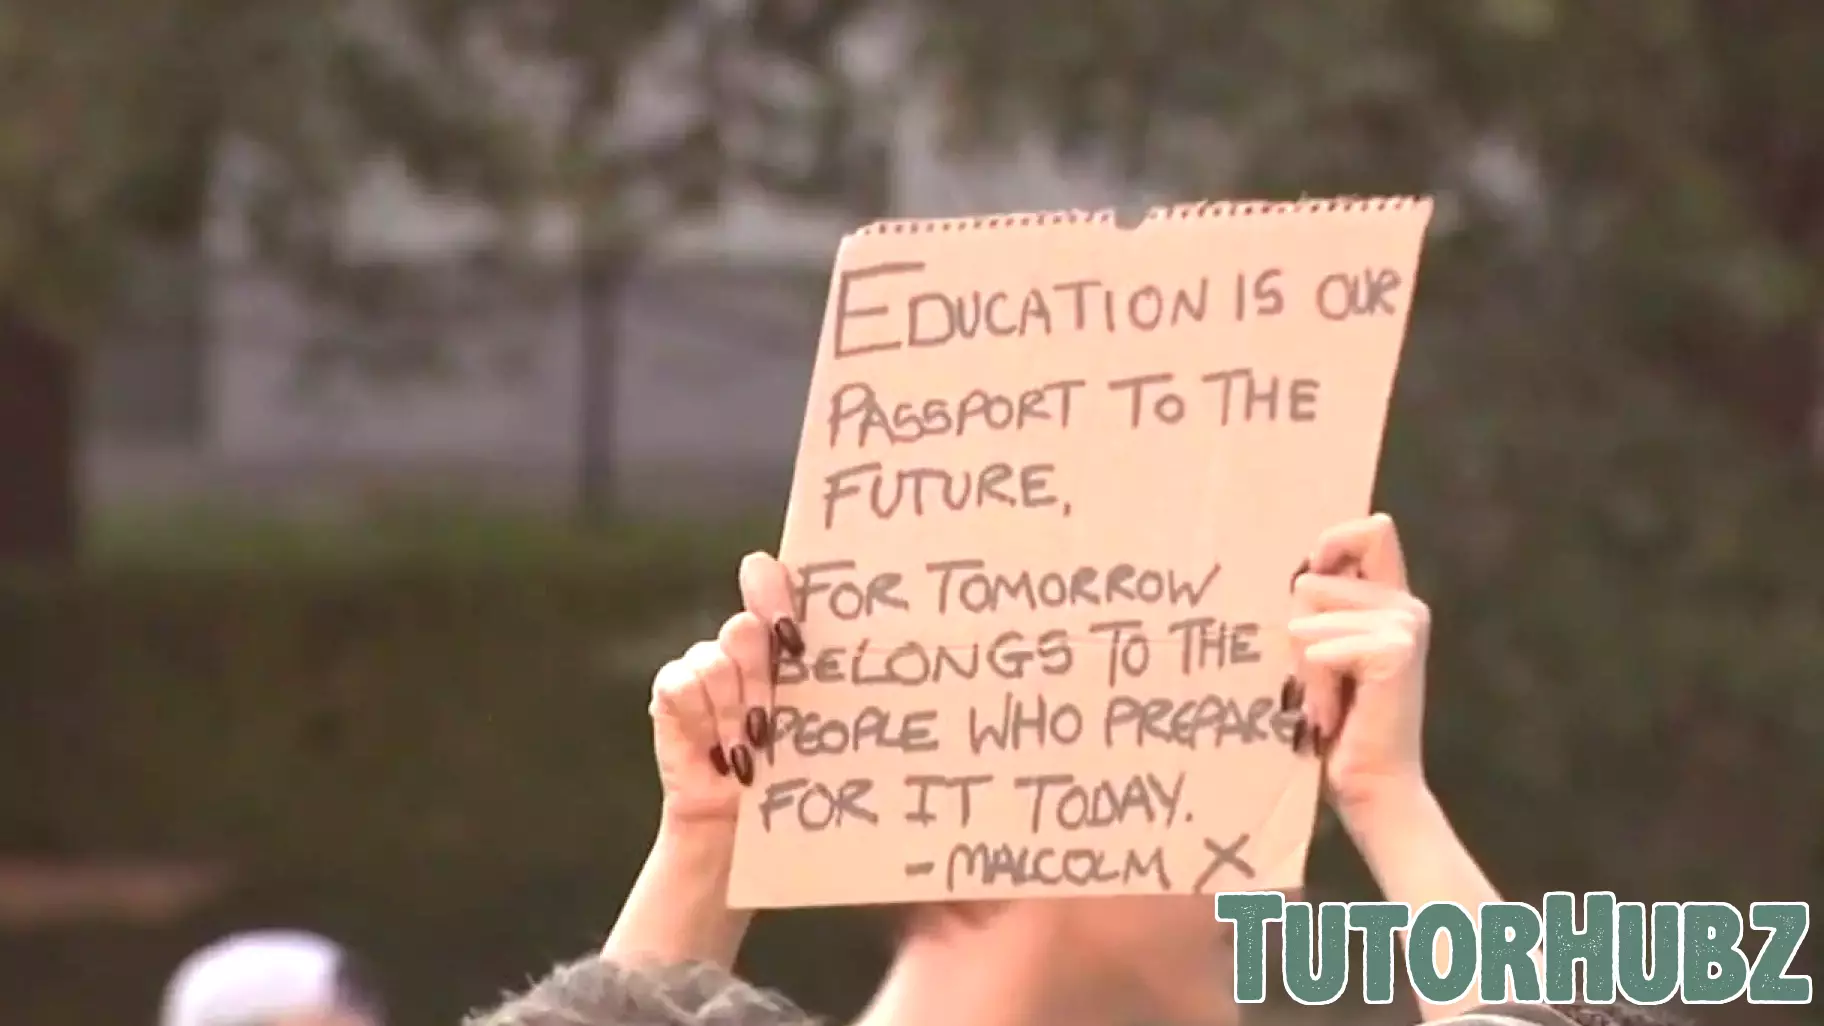 EDUCATION IS OUR
PASSPORT TO THE
FUTURE,
FOR TOMORROW
BELONGS TO THE
PEOPLE WHO PREPARE
FOR IT TODAY.
- MALCOLM X
TUTORHUBZ